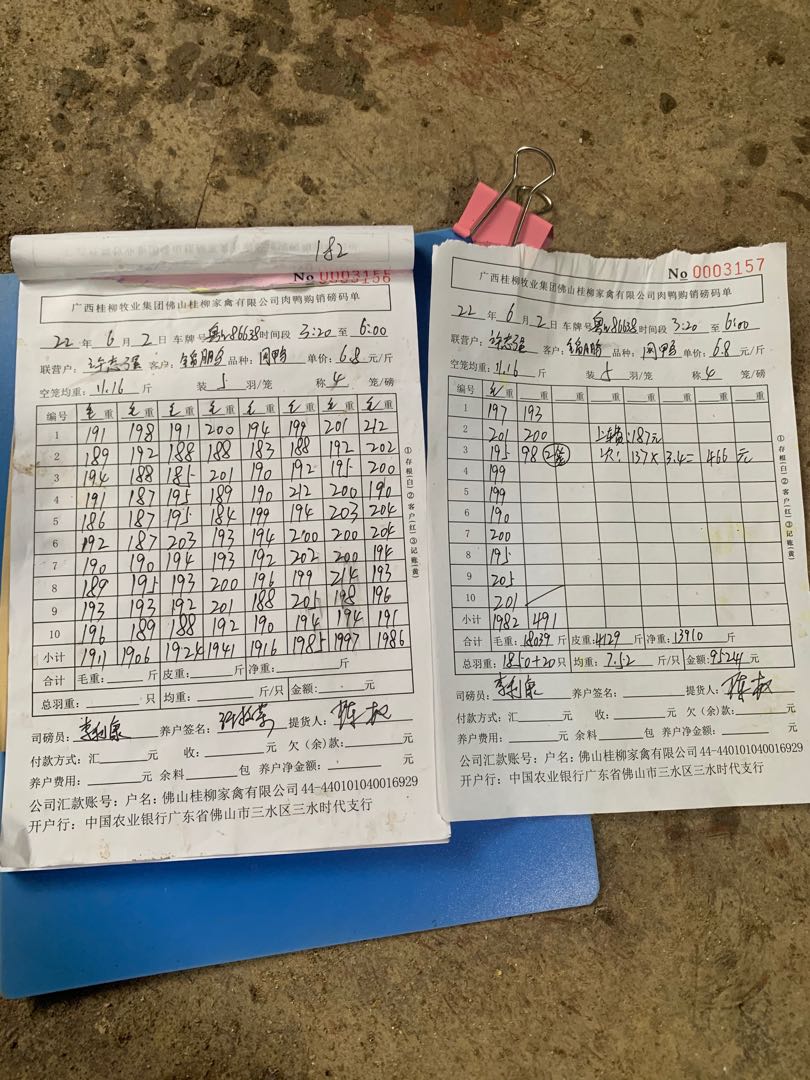 182
No 0003156
广西桂柳牧业集团佛山桂柳家禽有限公司肉鸭购销磅码单
22 年 6 月 2 日 车牌号 粤 86638 时间段 3:20 至 6:00
联营户: 许志强 客户: 锦鹏 品种: 网鸭 单价: 6.8 元/斤
空笼均重: 11.16 斤 装 5 羽/笼 称 4 笼/磅
编号 毛重 毛重 毛重 毛重 毛重 毛重 毛重 毛重
1 191 198 191 200 194 199 201 212
2 189 192 188 188 183 188 192 202
3 194 188 185 201 190 192 195 200
4 191 187 195 189 190 212 200 190
5 186 187 195 184 199 194 203 204
6 192 187 203 193 194 200 200 204
7 190 190 194 193 192 202 200 194
8 189 195 193 200 196 199 214 193
9 193 193 192 201 188 205 198 196
10 196 189 188 192 190 194 194 191
小计 1911 1906 1924 1941 1916 1985 1997 1986
合计 毛重: 斤 皮重: 斤 净重: 斤
总羽重: 只 均重: 斤/只 金额: 元
司磅员: 李利泉 养户签名: 提货人: 陈权
付款方式: 汇 元 收: 元 欠(余)款: 元
养户费用: 元 余料 包 养户净金额: 元
公司汇款账号: 户名: 佛山桂柳家禽有限公司 44-440101040016929
开户行: 中国农业银行广东省佛山市三水区三水时代支行
①存根(白)②客户(红)③记账(黄)
No 0003157
广西桂柳牧业集团佛山桂柳家禽有限公司肉鸭购销磅码单
22 年 6 月 2 日 车牌号 粤 86638 时间段 3:20 至 6:00
联营户: 许志强 客户: 锦鹏 品种: 网鸭 单价: 6.8 元/斤
空笼均重: 11.16 斤 装 5 羽/笼 称 4 笼/磅
编号 毛重 重 重 重 重 重 重 重
1 197 193
2 201 200 上车费: 187元
3 195 98 2笼 欠: 137×3.4= 466 元
4 199
5 199
6 190
7 200
8 195
9 205
10 201
小计 1982 491
合计 毛重: 18039 斤 皮重: 4129 斤 净重: 13910 斤
总羽重: 1850+20 只 均重: 7.52 斤/只 金额: 95244 元
司磅员: 李利泉 养户签名: 提货人: 陈权
付款方式: 汇 元 收: 元 欠(余)款: 元
养户费用: 元 余料 包 养户净金额: 元
公司汇款账号: 户名: 佛山桂柳家禽有限公司 44-440101040016929
开户行: 中国农业银行广东省佛山市三水区三水时代支行
①存根(白)②客户(红)③记账(黄)